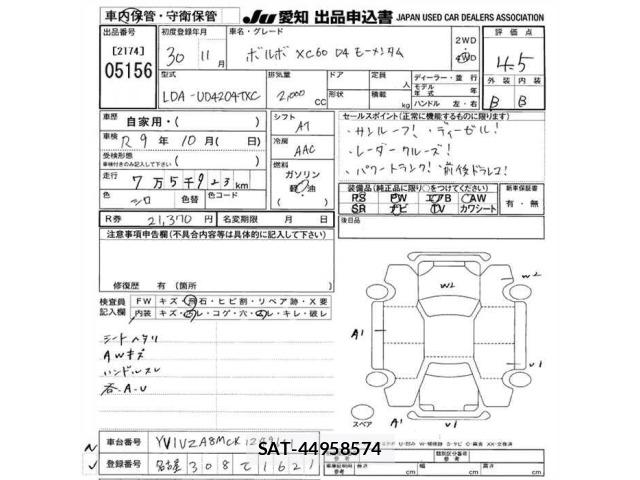 車内保管・守衛保管
JU 愛知 出品申込書 JAPAN USED CAR DEALERS ASSOCIATION
出品番号
[2174]
05156
初度登録年月
30年 11月
車名・グレード
ボルボ XC60 D4 モーメンタム
2WD
4WD
評価点
4.5
型式
LDA-UD4204TXC
排気量
2,000 CC
ドア
形状
定員 人
積載 kg
ディーラー・並行
モデル年式 年
ハンドル 左・右
外装 内装
B B
車歴
自家用・( )
車検
R 9年 10月( 日)
受検形態
(車検付きのみ記入して下さい)
走行
7万5千923km
色 シロ
色替
色コード
シフト
AT
冷房
AAC
燃料
ガソリン
軽油
・
セールスポイント(正常に機能するものに限ります)
・サンルーフ! ・ディーゼル!
・レーダークルーズ!
・パワートランク! 前後ドラレコ!
装備品(純正品に限り○をつけてください)
PS PW エアB AW
SR ナビ TV カワシート
新車保証書
有・無
後日品
R券 21,370円
名変期限 月 日
注意事項申告欄(不具合内容等は具体的に記入して下さい)
修復歴 有(箇所 )
検査員記入欄
FW キズ・飛石・ヒビ割・リペア跡・X要
内装 キズ・汚レ・コゲ・穴・スレ・キレ・破レ
シートヘタリ
AWキズ
ハンドルスレ
W2
W2
A1
U1
A1
U1
スペア
車台番号
登録番号 名古屋 308 て 1621
SAT-44958574
類別区分番号
長さ cm 幅 cm 高さ cm